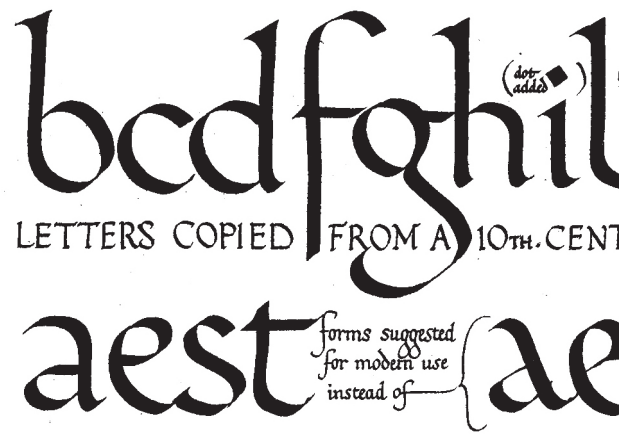 bcdfghil
(dot
added)
LETTERS COPIED FROM A 10TH. CENT
aest
forms suggested
for modern use
instead of
ae